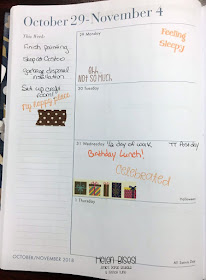 October 29-November 4
This Week:
Finish painting
Shop at Costco
Garbage disposal
installation
Set up craft
room!
My Happy Place
29 Monday
Feeling
Sleepy!
NOT SO MUCH.
30 Tuesday
31 Wednesday
1/2 day of work
Birthday Lunch!
Celebrated
Halloween
1 Thursday
OCTOBER/NOVEMBER 2018